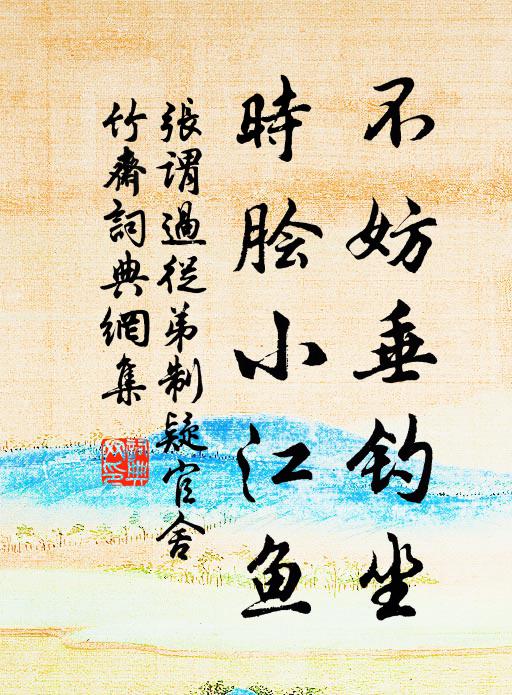 不妨垂钓坐
時脍小江鱼
張謂過從弟制疑官舍
竹齋詞典網集